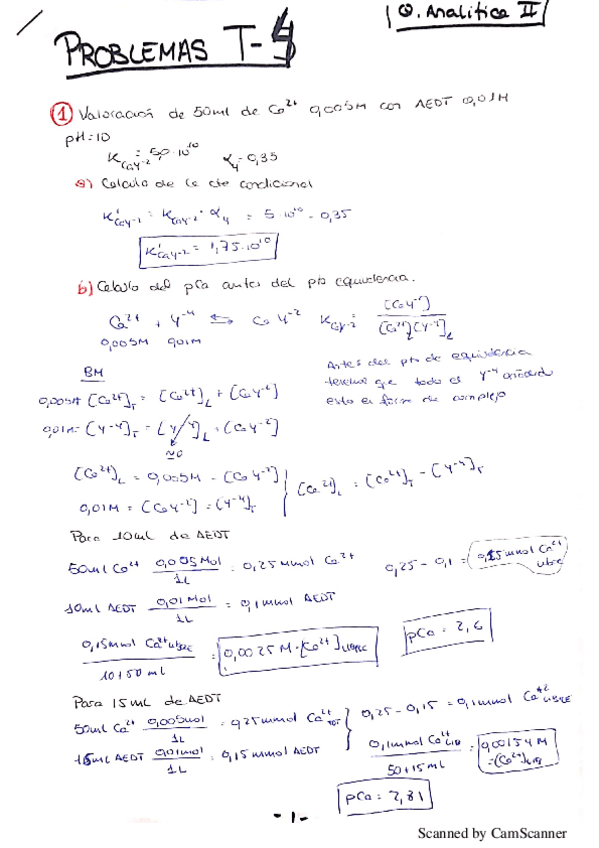 Q. Analítica II
PROBLEMAS T-4
① Valoración de 50ml de Ca²⁺ 0,005M con AEDT 0,01M
pH=10
K_CaY⁻² = 5,0·10¹⁰ α₄ = 0,35
a) Calculo de la cte condicional
K'_CaY⁻² = K_CaY⁻² · α₄ = 5·10¹⁰ · 0,35
K'_CaY⁻² = 1,75·10¹⁰
b) Calculo del pCa antes del pto equivalencia.
Ca²⁺ + Y⁻⁴ ⇆ CaY⁻² K_CaY⁻² = [CaY⁻²] / [Ca²⁺]_L [Y⁻⁴]_L
0,005M 0,01M
Antes del pto de equivalencia
tenemos que todo el Y⁻⁴ añadido
esta en forma de complejo
BM
0,005M [Ca²⁺]_T = [Ca²⁺]_L + [CaY⁻²]
0,01M = [Y⁻⁴]_T = [Y⁻⁴]_L + [CaY⁻²]
≈0
[Ca²⁺]_L = 0,005M - [CaY⁻²]
0,01M = [CaY⁻²] = [Y⁻⁴]_T
[Ca²⁺]_L = [Ca²⁺]_T - [Y⁻⁴]_T
Para 10mL de AEDT
50ml Ca²⁺ 0,005 Mol / 1L = 0,25 mmol Ca²⁺
0,25 - 0,1 = 0,15 mmol Ca²⁺ libre
10ml AEDT 0,01 Mol / 1L = 0,1 mmol AEDT
0,15 mmol Ca²⁺ LIBRE / 10+50 ml = 0,0025 M = [Ca²⁺] LIBRE
pCa = 2,6
Para 15 mL de AEDT
50ml Ca²⁺ 0,005mol / 1L = 0,25 mmol Ca²⁺ TOT
0,25 - 0,15 = 0,1 mmol Ca⁺² LIBRE
15ml AEDT 0,01mol / 1L = 0,15 mmol AEDT
0,1 mmol Ca²⁺ LIB / 50+15 ml = 0,00154 M = [Ca²⁺] LIB
pCa = 2,81
- 1 -
Scanned by CamScanner